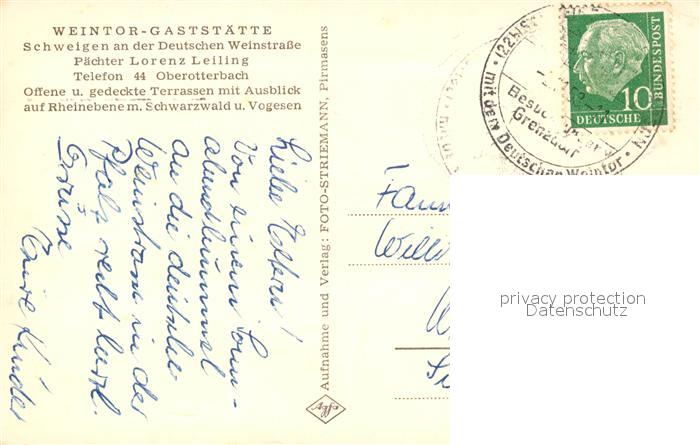 WEINTOR-GASTSTÄTTE
Schweigen an der Deutschen Weinstraße
Pächter Lorenz Leiling
Telefon 44 Oberotterbach
Offene u. gedeckte Terrassen mit Ausblick
auf Rheinebene m. Schwarzwald u. Vogesen
Liebe Eltern!
Von einem Sonn-
abendbummel
an die deutsche
Weinstrasse in der
Pfalz recht herzl.
Grüsse
Eure Kinder
Aufnahme und Verlag: FOTO-STRIEMANN, Pirmasens
Agfa
(22b)
mit dem Deutschen Weintor
Grenzdorf
10
DEUTSCHE
BUNDESPOST
Fam
Will
privacy protection
Datenschutz